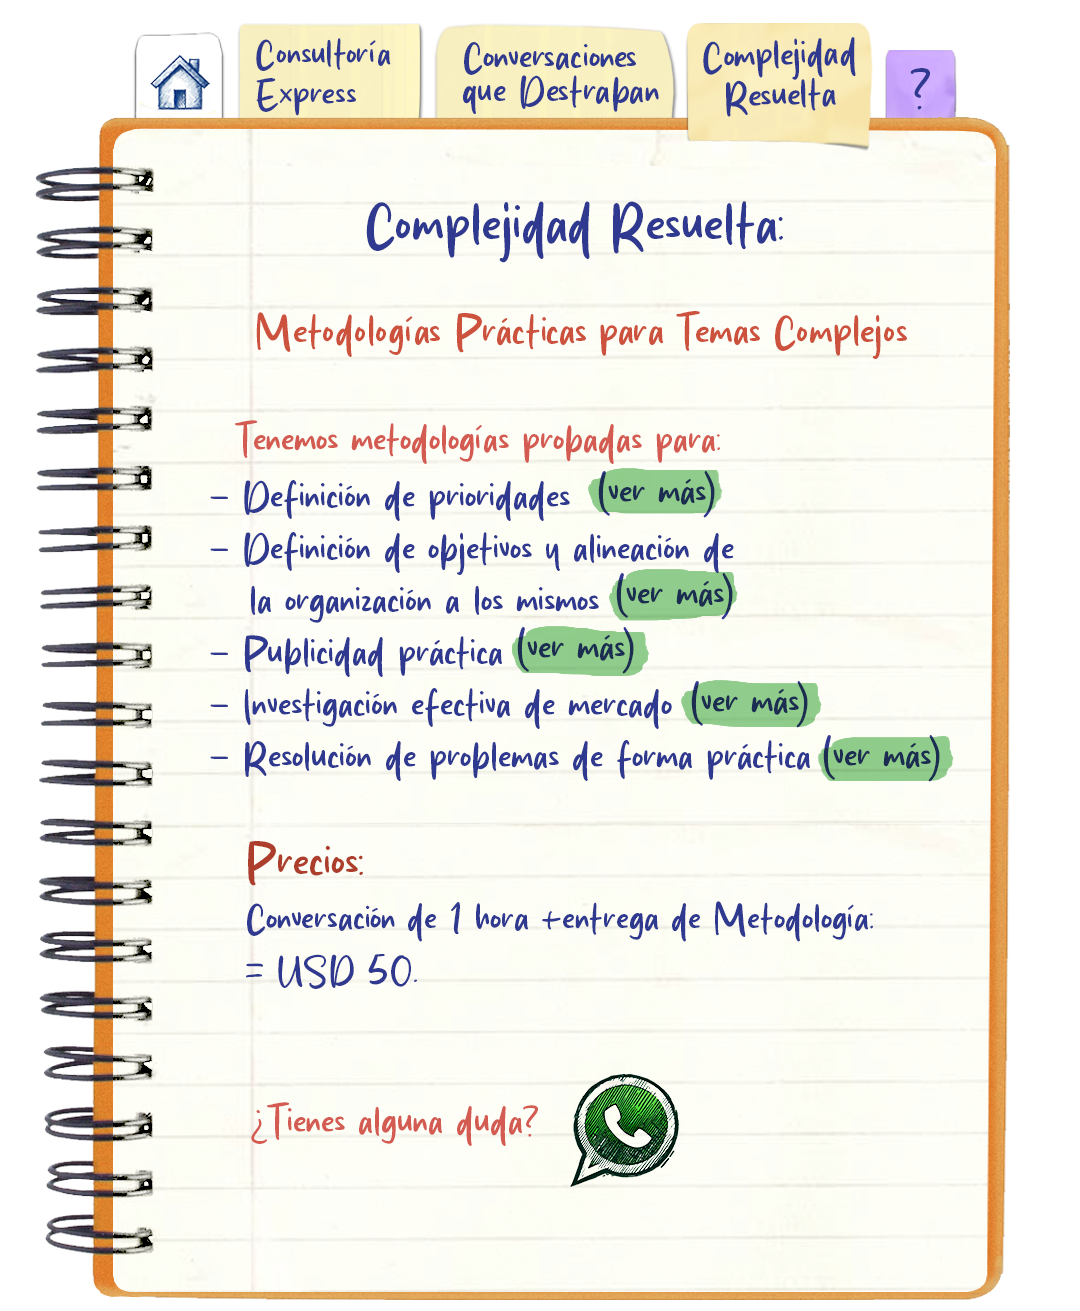 Consultoría
Express
Conversaciones
que Destraban
Complejidad
Resuelta
?
Complejidad Resuelta:
Metodologías Prácticas para Temas Complejos
Tenemos metodologías probadas para:
- Definición de prioridades (ver más)
- Definición de objetivos y alineación de
la organización a los mismos (ver más)
- Publicidad práctica (ver más)
- Investigación efectiva de mercado (ver más)
- Resolución de problemas de forma práctica (ver más)
Precios:
Conversación de 1 hora +entrega de Metodología:
= USD 50.
¿Tienes alguna duda?